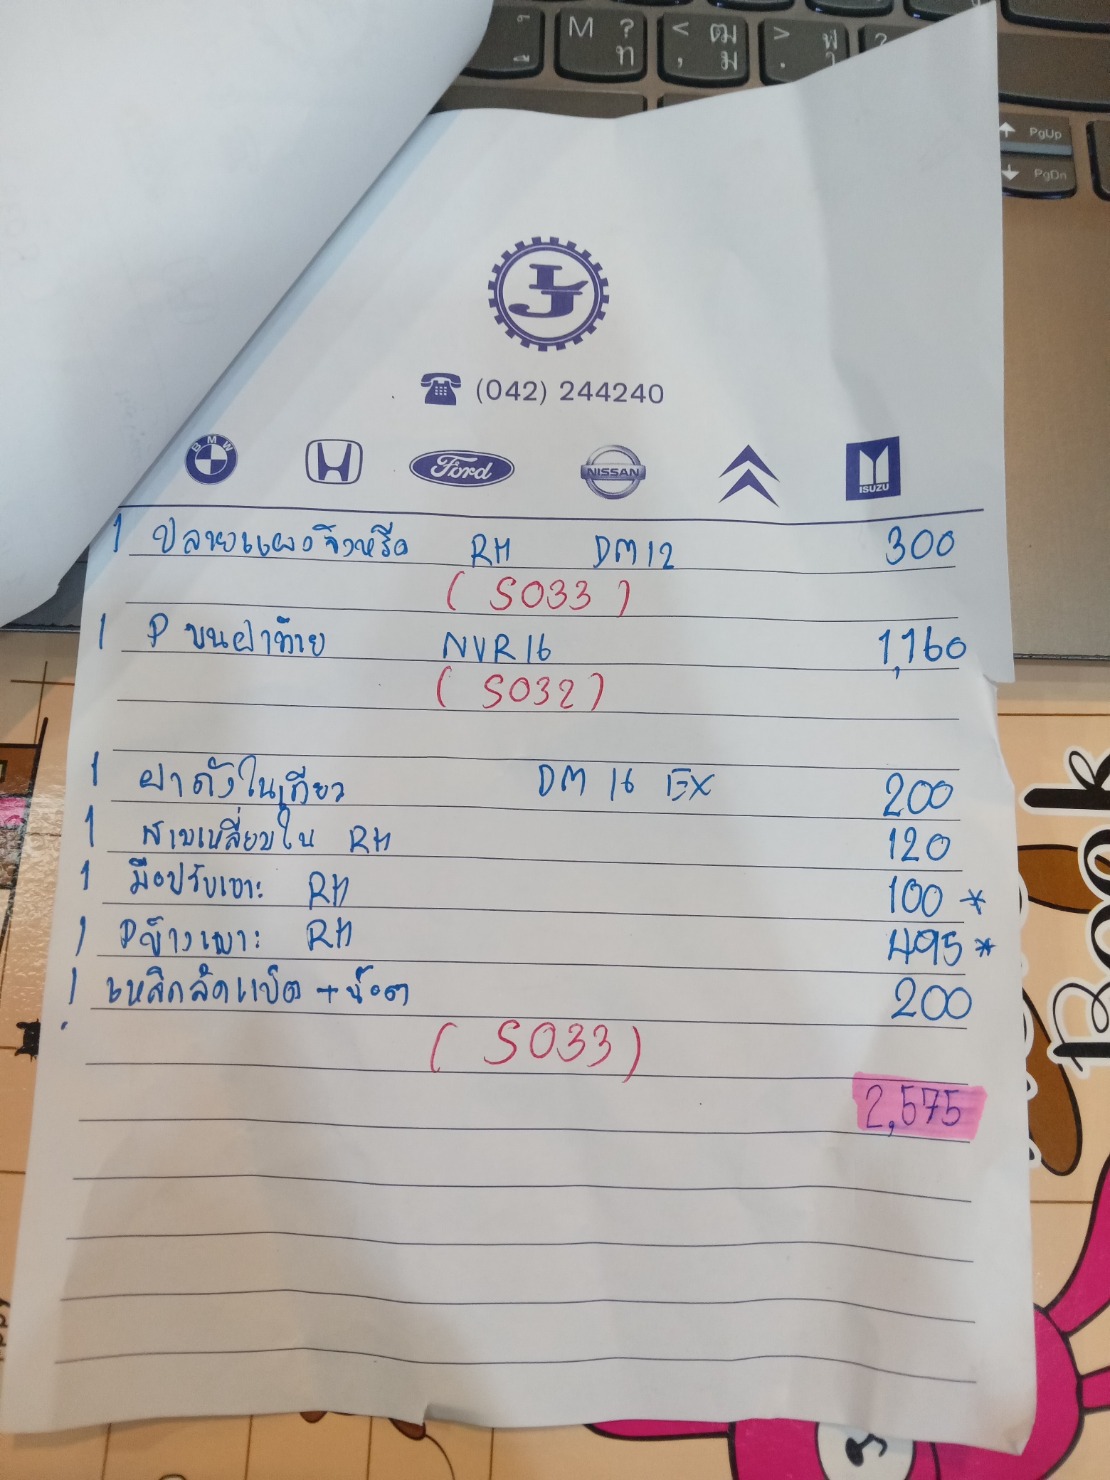 M ? ท
< ฒ , ม
> ฬ .
?
PgUp
PgDn
(042) 244240
BMW Ford NISSAN ISUZU
1 ปลายแผงจิงหรีด RH DM12 300
(S033)
1 P บนฝาท้าย NVR16 1,160
(S032)
1 ฝาถังในเกียว DM 16 EX 200
1 สามเหลี่ยมใน RH 120
1 มือปรับเบาะ RH 100 *
1 Pข้างเบาะ RH 495 *
1 เหล็กลัดแบ็ต + น๊อต 200
(S033)
2,575
Book